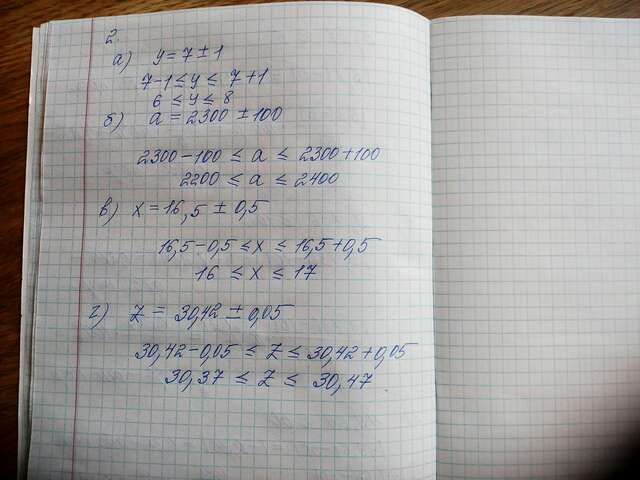 2.
а) y = 7 ± 1
7-1 ≤ y ≤ 7+1
6 ≤ y ≤ 8
б) a = 2300 ± 100
2300-100 ≤ a ≤ 2300+100
2200 ≤ a ≤ 2400
в) x = 16,5 ± 0,5
16,5-0,5 ≤ x ≤ 16,5+0,5
16 ≤ x ≤ 17
г) z = 30,42 ± 0,05
30,42-0,05 ≤ z ≤ 30,42+0,05
30,37 ≤ z ≤ 30,47